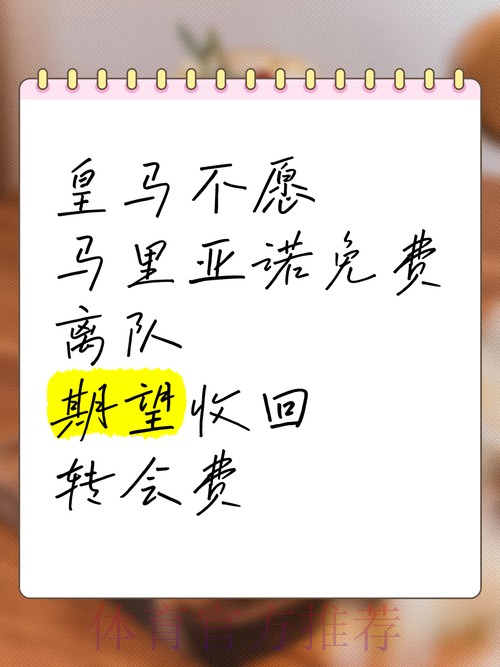 皇马不愿
马里亚诺免费
离队
期望收回
转会费
体育官方推荐